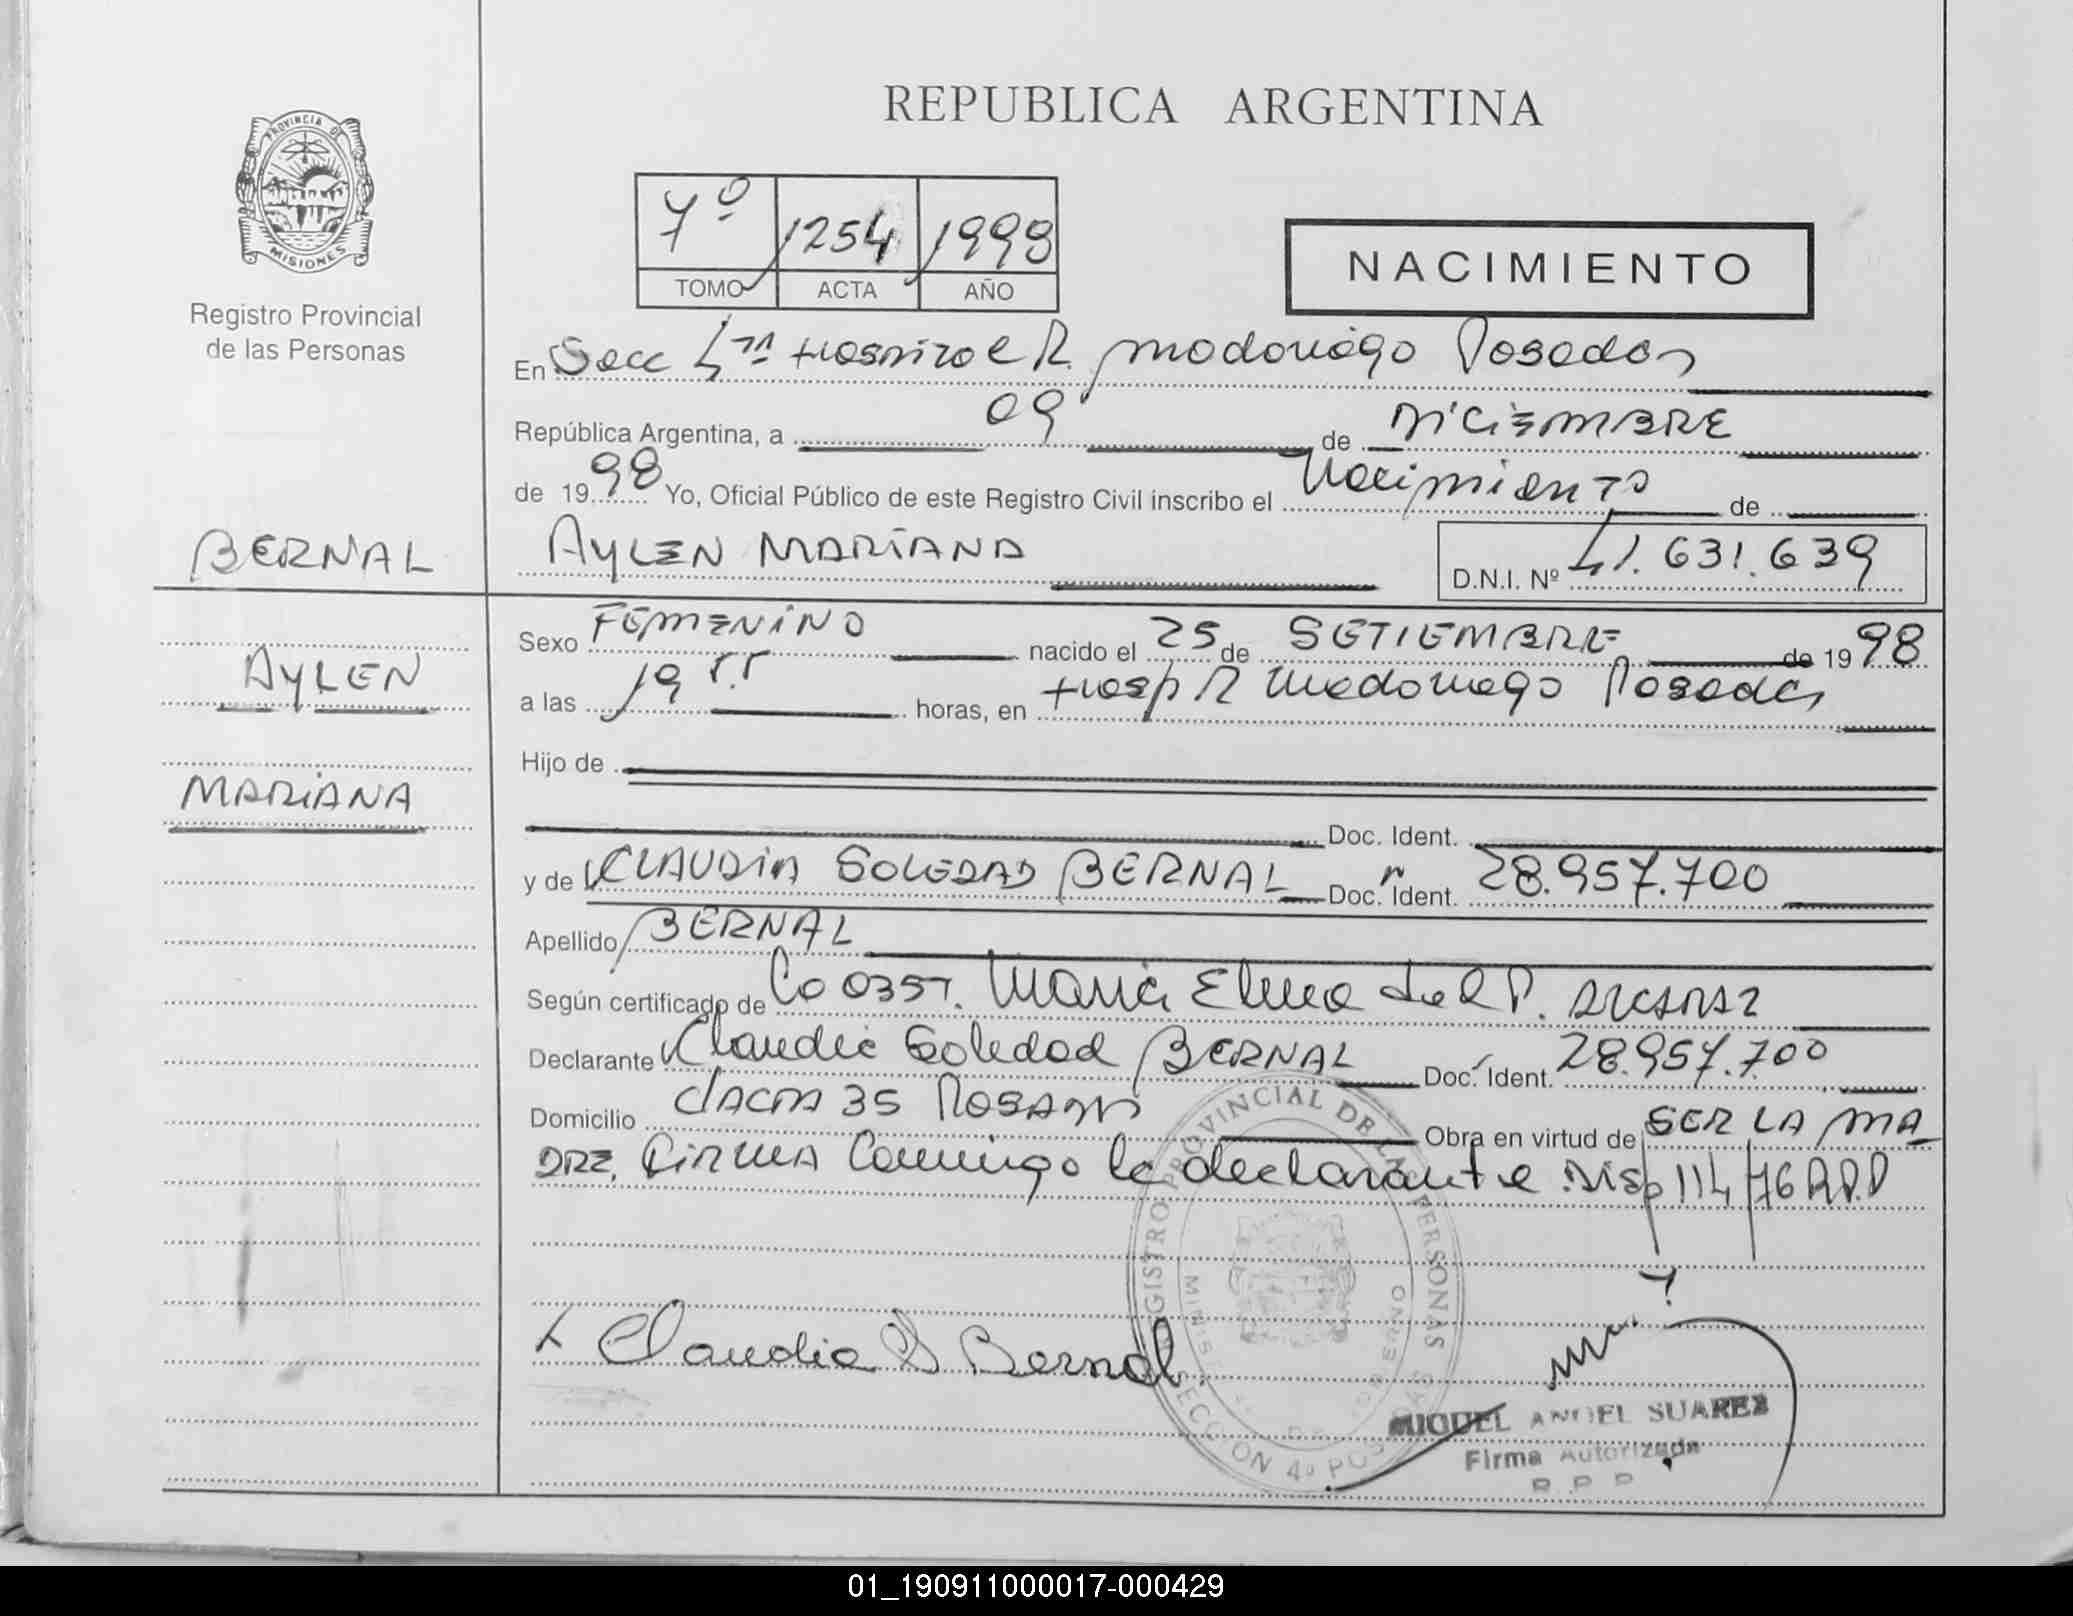 REPUBLICA ARGENTINA
PROVINCIA DE
MISIONES
Registro Provincial
de las Personas
7º 1254 1998
TOMO ACTA AÑO
NACIMIENTO
En Secc 4ta Hospital R. Madariaga Posadas
República Argentina, a 09 de DICIEMBRE
de 1998 Yo, Oficial Público de este Registro Civil inscribo el Nacimiento de
BERNAL
AYLEN MARIANA
D.N.I. Nº 41.631.639
AYLEN
MARIANA
Sexo FEMENINO nacido el 25 de SETIEMBRE de 1998
a las 19 horas, en Hosp R Madariaga Posadas
Hijo de
Doc. Ident.
y de CLAUDIA SOLEDAD BERNAL Doc. Ident. 28.957.700
Apellido BERNAL
Según certificado de María Elena del P.
Declarante Claudia Soledad BERNAL Doc. Ident. 28.957.700
Domicilio 35 Obra en virtud de SER LA MA
DRE. FIRMA Conmigo la declarante Disp 114/76 R.P.P
Claudia S Bernal
REGISTRO PROVINCIAL DE LAS PERSONAS
SECCION 4ª POSADAS
MIGUEL ANGEL SUAREZ
Firma Autorizada
R.P.P.
01_190911000017-000429